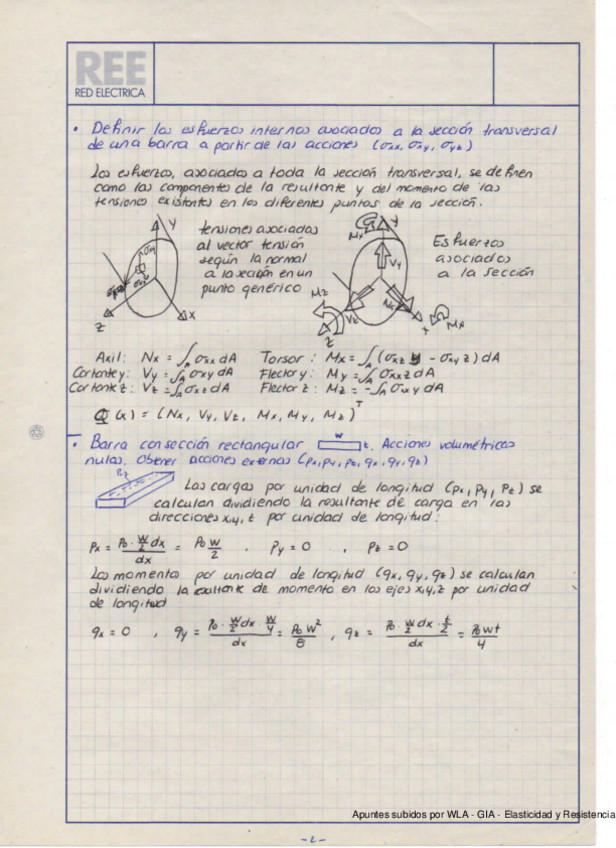 REE
RED ELECTRICA
• Definir los esfuerzos internos asociados a la sección transversal
de una barra a partir de las acciones (σxx, σxy, σxz)
Los esfuerzos, asociados a toda la sección transversal, se definen
como las componentes de la resultante y del momento de las
tensiones existentes en los diferentes puntos de la sección.
tensiones asociadas
al vector tensión
según la normal
a la sección en un
punto genérico
Y
σxy
σxx
X
Z
Y
Mx
Vy
Mz
Vz
Nx
X
Mx
Z
Esfuerzos
asociados
a la sección
Axil: Nx = ∫A σxx dA Torsor: Mx = ∫A (σxz y - σxy z) dA
Cortante y: Vy = ∫A σxy dA Flector y: My = ∫A σxx z dA
Cortante z: Vz = ∫A σxz dA Flector z: Mz = -∫A σxx y dA
Q (x) = (Nx, Vy, Vz, Mx, My, Mz)T
• Barra con sección rectangular w t. Acciones volumétricas
nulas. Obtener acciones externas (px, py, pz, qx, qy, qz)
Las cargas por unidad de longitud (px, py, pz) se
calculan dividiendo la resultante de carga en las
direcciones x,y,z por unidad de longitud:
px = p0 · w/2 dx / dx = p0 w / 2 , py = 0 , pz = 0
Los momentos por unidad de longitud (qx, qy, qz) se calculan
dividiendo la resultante de momento en los ejes x,y,z por unidad
de longitud
qx = 0 , qy = p0 · w/2 dx · w/4 / dx = p0 w² / 8 , qz = p0 · w/2 dx · t/2 / dx = p0 w t / 4
Apuntes subidos por WLA - GIA - Elasticidad y Resistencia
-2-